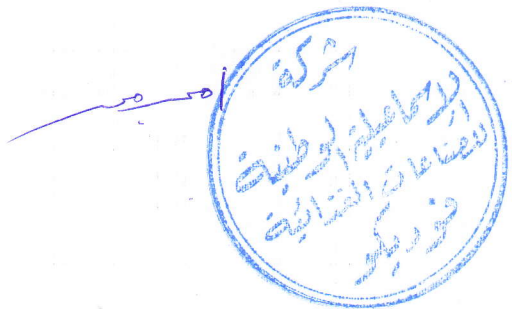 شركة
الإسماعيلية الوطنية
للصناعات الغذائية
فوديكو